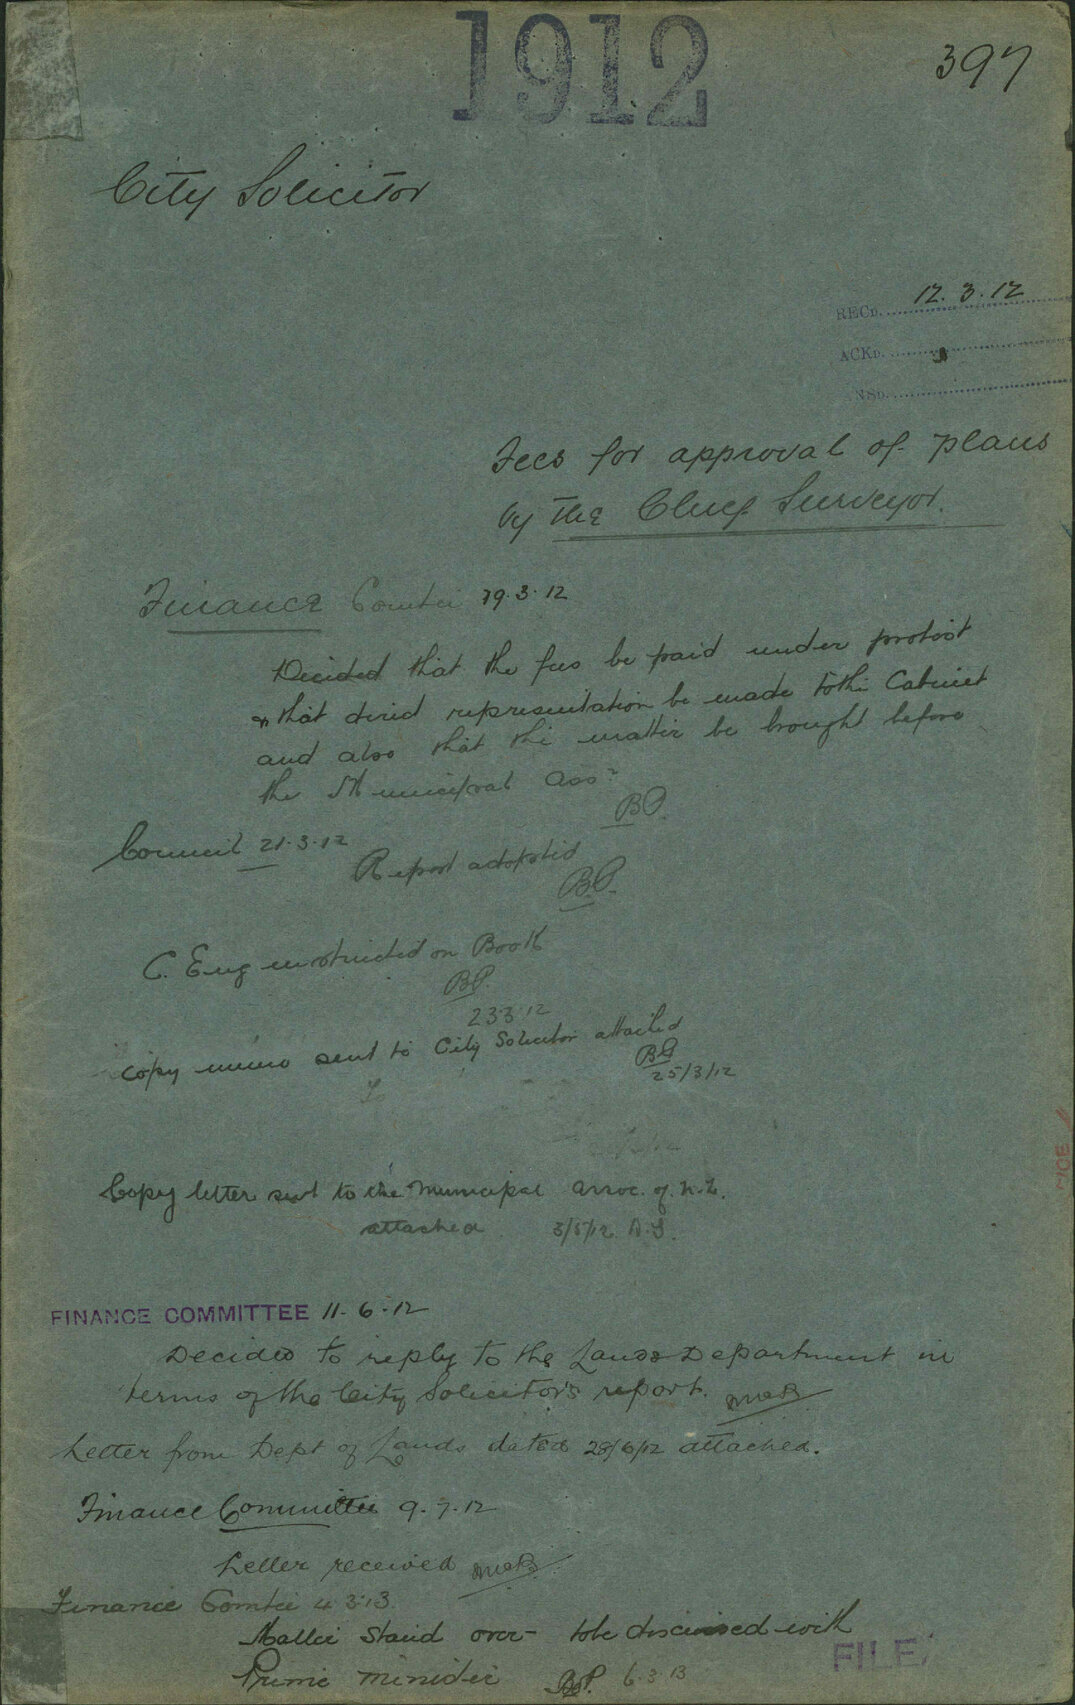 1912
397
City Solicitor
RECD. 12.3.12
ACKD.
NSD.
Fees for approval of plans
by the Chief Surveyor.
Finance Comtee 19.3.12
Decided that the fees be paid under protest
& that direct representation be made to the Cabinet
and also that the matter be brought before
the Municipal Assn
BP.
Council 21.3.12
Report adopted
B.P.
C. Eng instructed on Book
BP.
23.3.12
Copy memo sent to City Solicitor attached
BP
25/3/12
To
Copy letter sent to the Municipal Assoc. of N.Z.
attached 3/5/12.
FINANCE COMMITTEE 11-6-12
Decided to reply to the Lands Department in
terms of the City Solicitor's report.
Letter from Dept of Lands dated 28/6/12 attached.
Finance Committee 9.7.12
Letter received
Finance Comtee 4.3.13
Matter stand over - to be discussed with
Prime Minister BP. 6.3.13
FILE.